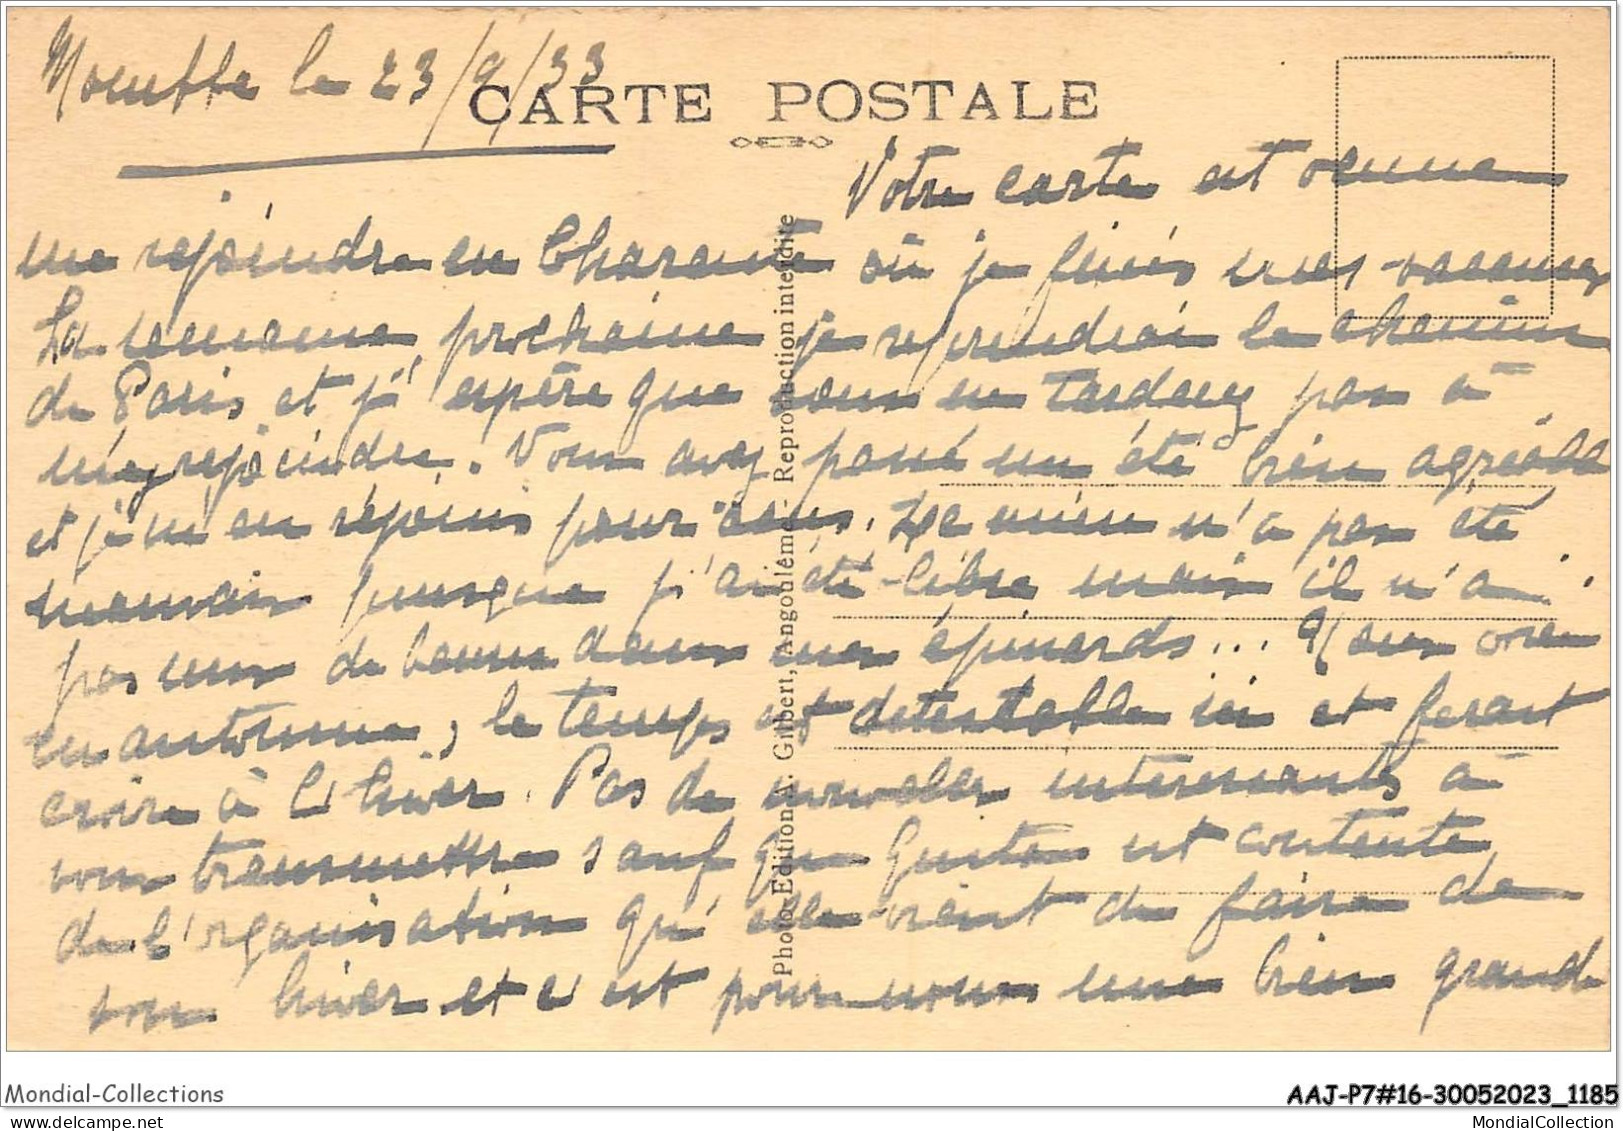 le 23/9/33
CARTE POSTALE
Votre carte est venue
me rejoindre en Charente où je finis mes vacances
La semaine prochaine je reprendrai le chemin
de Paris et j'espère que vous ne tardez pas à
m'y rejoindre. Vous avez passé un été bien agréable
et je m'en réjouis pour vous. Le mien n'a pas été
mauvais puisque j'ai été libre mais il n'a
pas mis de beurre dans mes épinards... Nous voici
en automne, le temps est détestable ici et ferait
croire à l'hiver. Pas de nouvelles intéressantes à
vous transmettre sauf que est contente
de l'organisation qu'elle vient de faire de
son hiver et c'est pour nous une bien grande
Photo-Edition A. Gilbert, Angoulême - Reproduction interdite
Mondial-Collections
AAJ-P7#16-30052023_1185
MondialCollection
www.delcampe.net